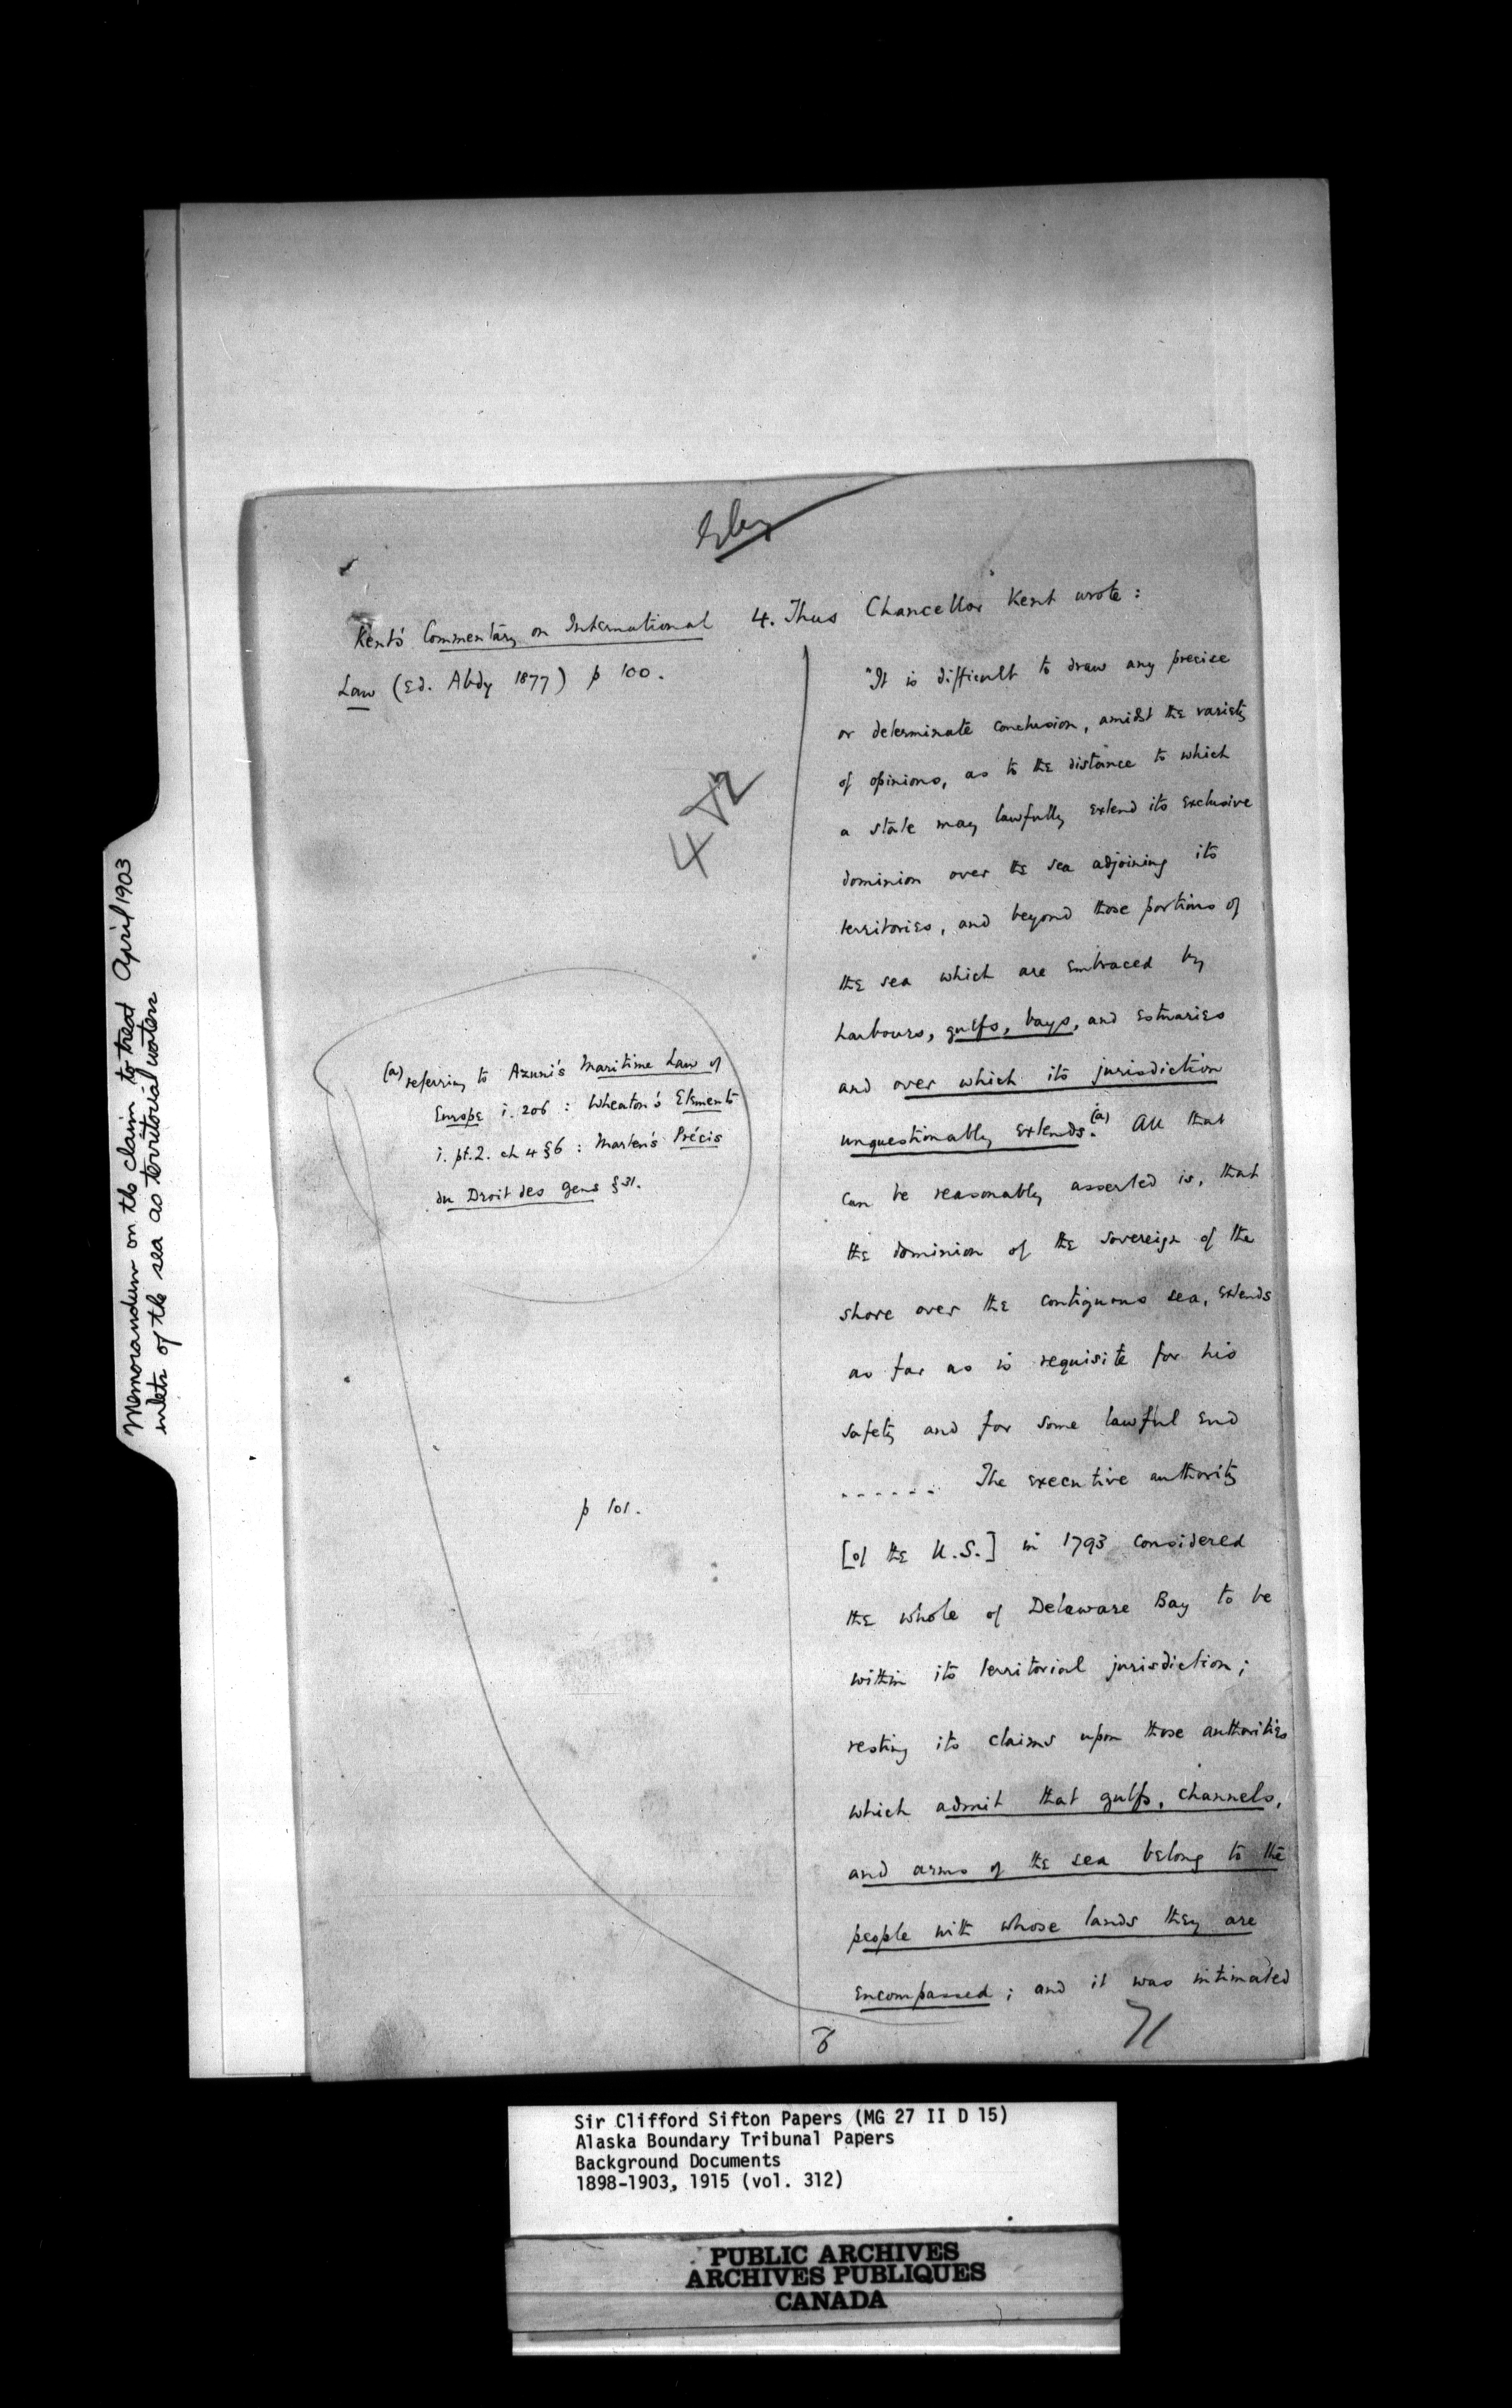 Memorandum on the claim to treat April 1903
inlets of the sea as territorial waters
Kent's Commentary on International
Law (Ed. Abdy 1877) p 100.
4
(a) referring to Azuni's Maritime Law of
Europe i. 206 : Wheaton's Elements
i. pt. 2. ch 4 § 6 : Marten's Précis
du Droit des Gens § 31.
p 101.
4. Thus Chancellor Kent wrote :
"It is difficult to draw any precise
or determinate conclusion, amidst the variety
of opinions, as to the distance to which
a state may lawfully extend its exclusive
dominion over the sea adjoining its
territories, and beyond those portions of
the sea which are embraced by
harbours, gulfs, bays, and estuaries
and over which its jurisdiction
unquestionably extends.(a) All that
can be reasonably asserted is, that
the dominion of the sovereign of the
shore over the contiguous sea, extends
as far as is requisite for his
safety and for some lawful end
...... The executive authority
[of the U.S.] in 1793 considered
the whole of Delaware Bay to be
within its territorial jurisdiction ;
resting its claims upon those authorities
which admit that gulfs, channels,
and arms of the sea belong to the
people with whose lands they are
encompassed ; and it was intimated
71
Sir Clifford Sifton Papers (MG 27 II D 15)
Alaska Boundary Tribunal Papers
Background Documents
1898-1903, 1915 (vol. 312)
PUBLIC ARCHIVES
ARCHIVES PUBLIQUES
CANADA